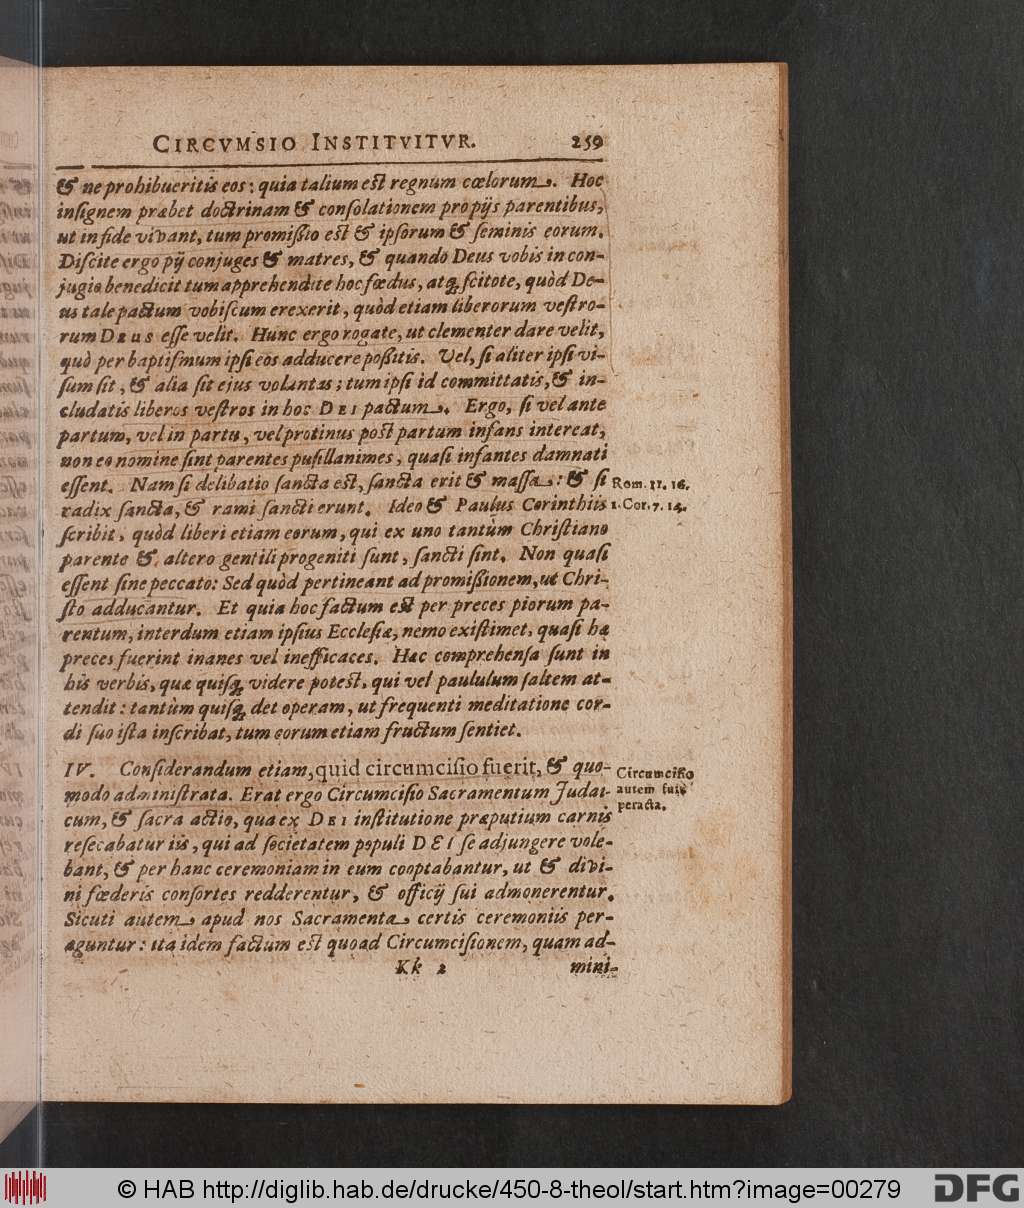 CIRCVMSIO INSTITVITVR. 259
& ne prohibueritis eos: quia talium est regnum cœlorum. Hoc
insignem præbet doctrinam & consolationem pro pijs parentibus,
ut in fide vivant, tum promißio est & ipsorum & seminis eorum.
Discite ergo pij conjuges & matres, & quando Deus vobis in con-
jugio benedicit tum apprehendite hoc fœdus, atq; scitote, quòd De-
us tale pactum vobiscum erexerit, quòd etiam liberorum vestro-
rum DEUS esse velit. Hunc ergo rogate, ut clementer dare velit,
quò per baptismum ipsi eos adducere poßitis. Vel, si aliter ipsi vi-
sum sit, & alia sit ejus voluntas; tum ipsi id committatis, & in-
cludatis liberos vestros in hoc DEI pactum. Ergo, si vel ante
partum, vel in partu, vel protinus post partum infans intereat,
non eo nomine sint parentes pusillanimes, quasi infantes damnati
essent. Nam si delibatio sancta est, sancta erit & massa: & si
Rom. 11. 16.
radix sancta, & rami sancti erunt. Ideo & Paulus Corinthiis
1. Cor. 7. 14.
scribit, quòd liberi etiam eorum, qui ex uno tantùm Christiano
parente & altero gentili progeniti sunt, sancti sint. Non quasi
essent sine peccato: Sed quòd pertineant ad promißionem, ut Chri-
sto adducantur. Et quia hoc factum est per preces piorum pa-
rentum, interdum etiam ipsius Ecclesiæ, nemo existimet, quasi hæ
preces fuerint inanes vel inefficaces. Hæc comprehensa sunt in
his verbis, quæ quisq; videre potest, qui vel paululum saltem at-
tendit: tantùm quisq; det operam, ut frequenti meditatione cor-
di suo ista inscribat, tum eorum etiam fructum sentiet.
IV. Considerandum etiam, quid circumcisio fuerit, & quo-
Circumcisio
modo administrata. Erat ergo Circumcisio Sacramentum Judai-
autem sui
cum, & sacra actio, qua ex DEI institutione præputium carnis
peracta.
resecabatur iis, qui ad societatem populi DEI se adjungere vole-
bant, & per hanc ceremoniam in eum cooptabantur, ut & divi-
ni fœderis consortes redderentur, & officij sui admonerentur.
Sicuti autem apud nos Sacramenta certis ceremoniis per-
aguntur: ita idem factum est quoad Circumcisionem, quam ad-
Kk 2 mini-
© HAB http://diglib.hab.de/drucke/450-8-theol/start.htm?image=00279
DFG